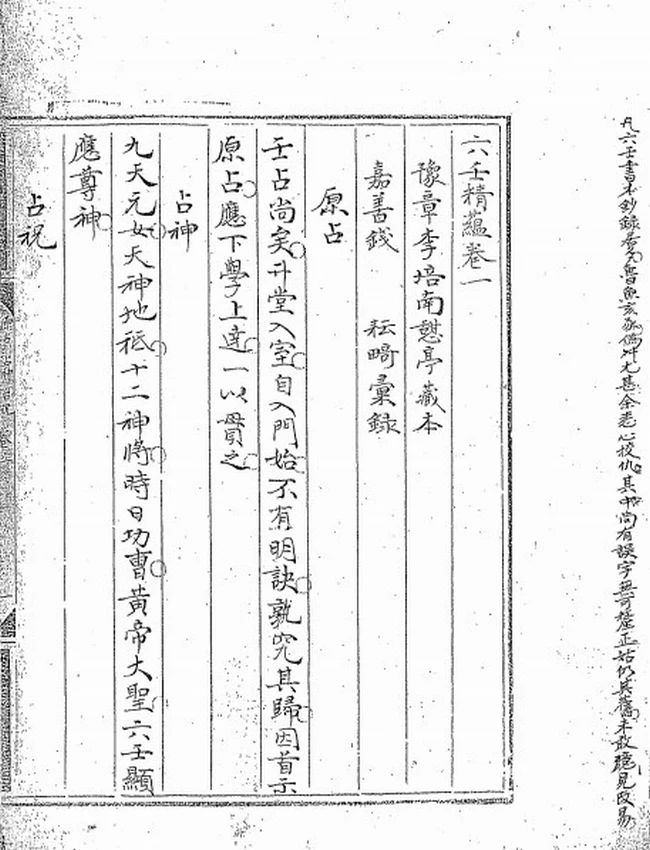 凡六壬書本鈔錄者久魯魚亥豕偽舛尤甚余悉心校仇其中尚有誤字無可釐正姑仍其舊未敢臆見改易
六壬精蘊卷一
豫章李培南憇亭藏本
嘉善錢 耘畸彙錄
原占
壬占尚矣升堂入室自入門始不有明訣孰究其歸因首示
原占應下學上達一以貫之
占神
九天元女天神地祗十二神將時日功曹黃帝大聖六壬顯
應尊神
占祝